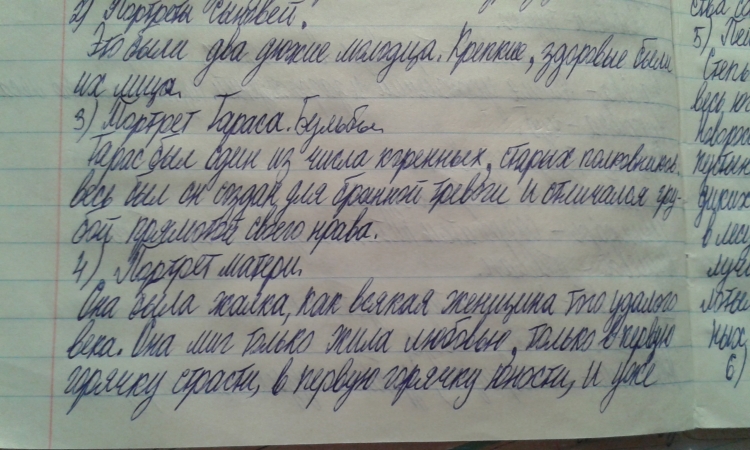 2) Портреты сыновей.
Это были два дюжие молодца. Крепкие, здоровые были
их лица.
3) Портрет Тараса Бульбы.
Тарас был один из числа коренных, старых полковников
весь был он создан для бранной тревоги и отличался гру-
бой прямотой своего нрава.
4) Портрет матери.
Она была жалка, как всякая женщина того удалого
века. Она миг только жила любовью, только в первую
горячку страсти, в первую горячку юности, и уже
5)
Степь
весь
в
6)